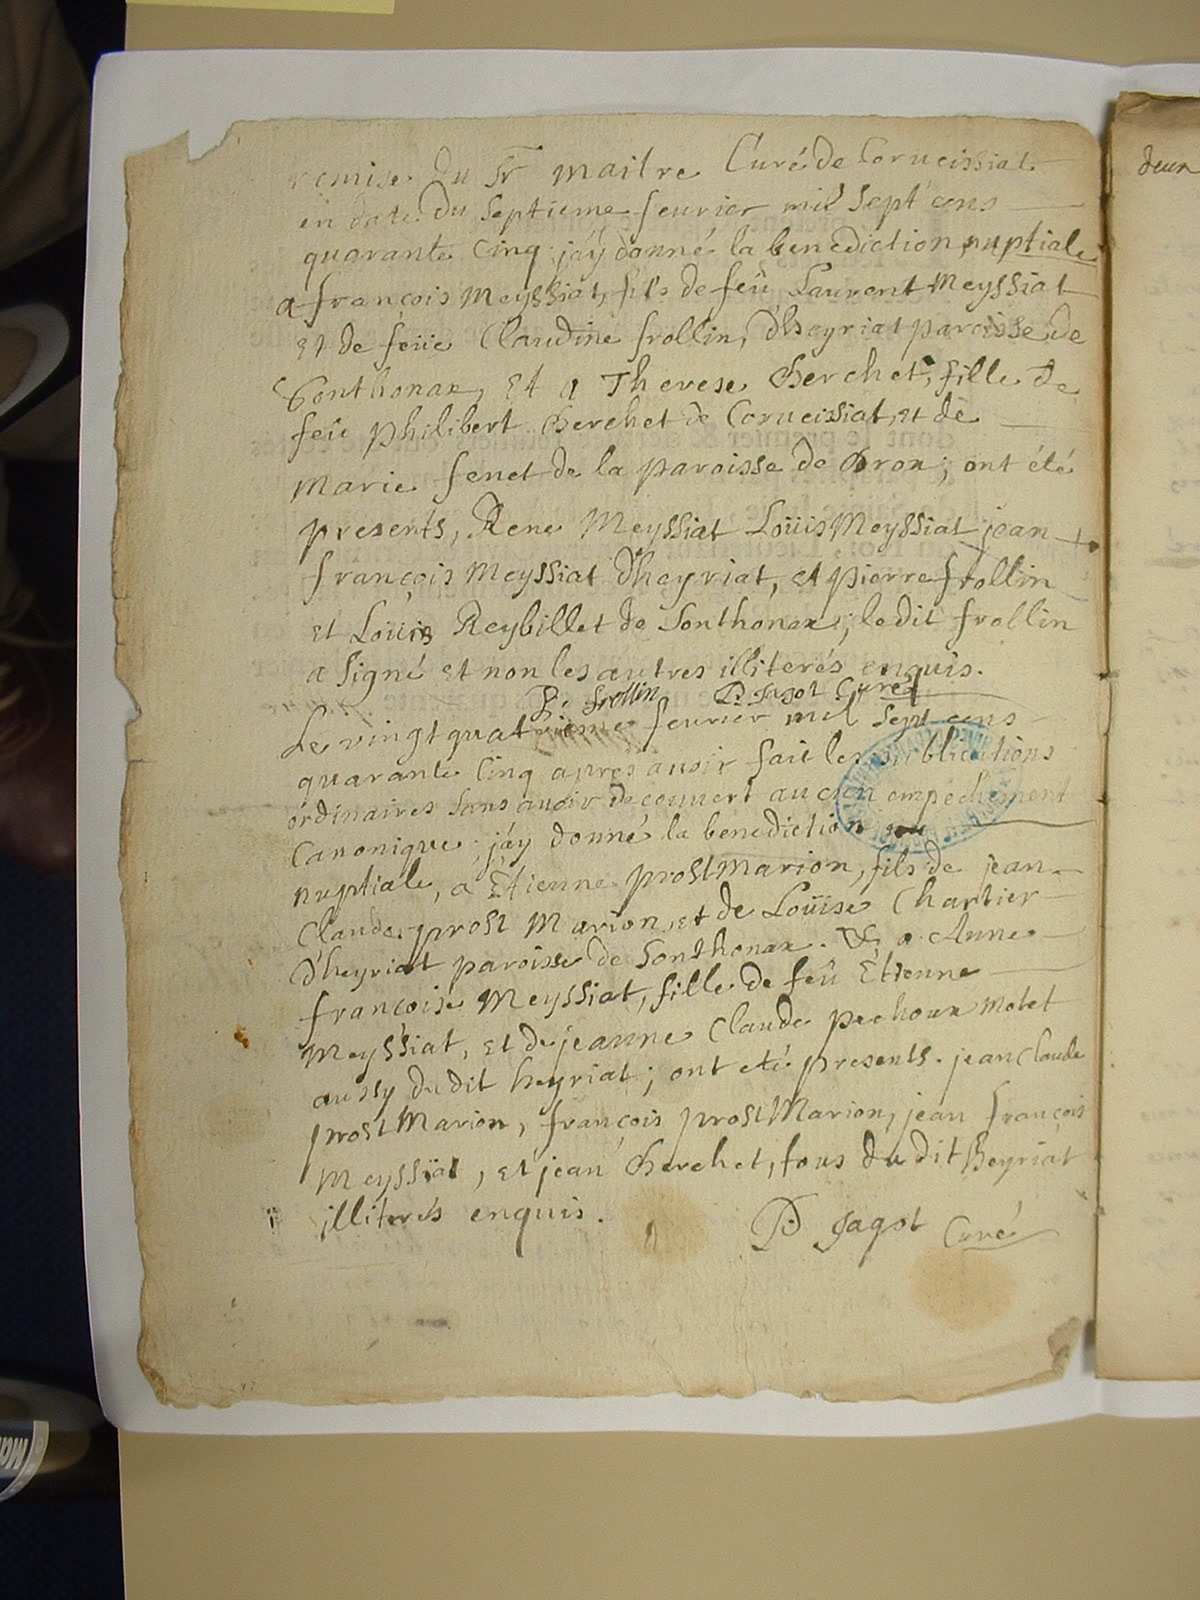 remise du Sr maitre Curé de Corveissiat
en date du septieme fevrier mil sept cens
quarante cinq j'aÿ donné la benediction nuptiale
a françois Meyssiat, fils de feû Laurent Meyssiat
et de feüe Claudine frollin, d'heyriat paroisse de
Sonthonax, et a Therese Berchet, fille de
feû philibert Berchet de Corveissiat, et de
Marie fenet de la paroisse de Drom; ont été
presents, Rene Meyssiat Loüis Meyssiat jean
françois Meyssiat d'heyriat, et pierre frollin
et Loüis Reybillet de Sonthonax; ledit frollin
a signé et non les autres illiterés enquis.
P. frollin P. Jagot Curé
Le vingt quatrieme fevrier mil sept cens
quarante cinq apres avoir fait les publications
ordinaires sans avoir decouvert aucun empechement
Canonique j'aÿ donné la benediction
nuptiale, a Étienne prost Marion, fils de jean
Claude prost Marion, et de Loüise Chartier
d'heyriat paroisse de Sonthonax. Et a Anne
francoise Meyssiat, fille de feû Étienne
Meyssiat, et de jeanne Claude pechoux Motet
aussy dudit heyriat; ont eté presents. jean Claude
prost Marion, françois prost Marion, jean françois
Meyssiat, et jean Berchet, tous du dit heyriat
illiterés enquis.
P. Jagot Curé
deux